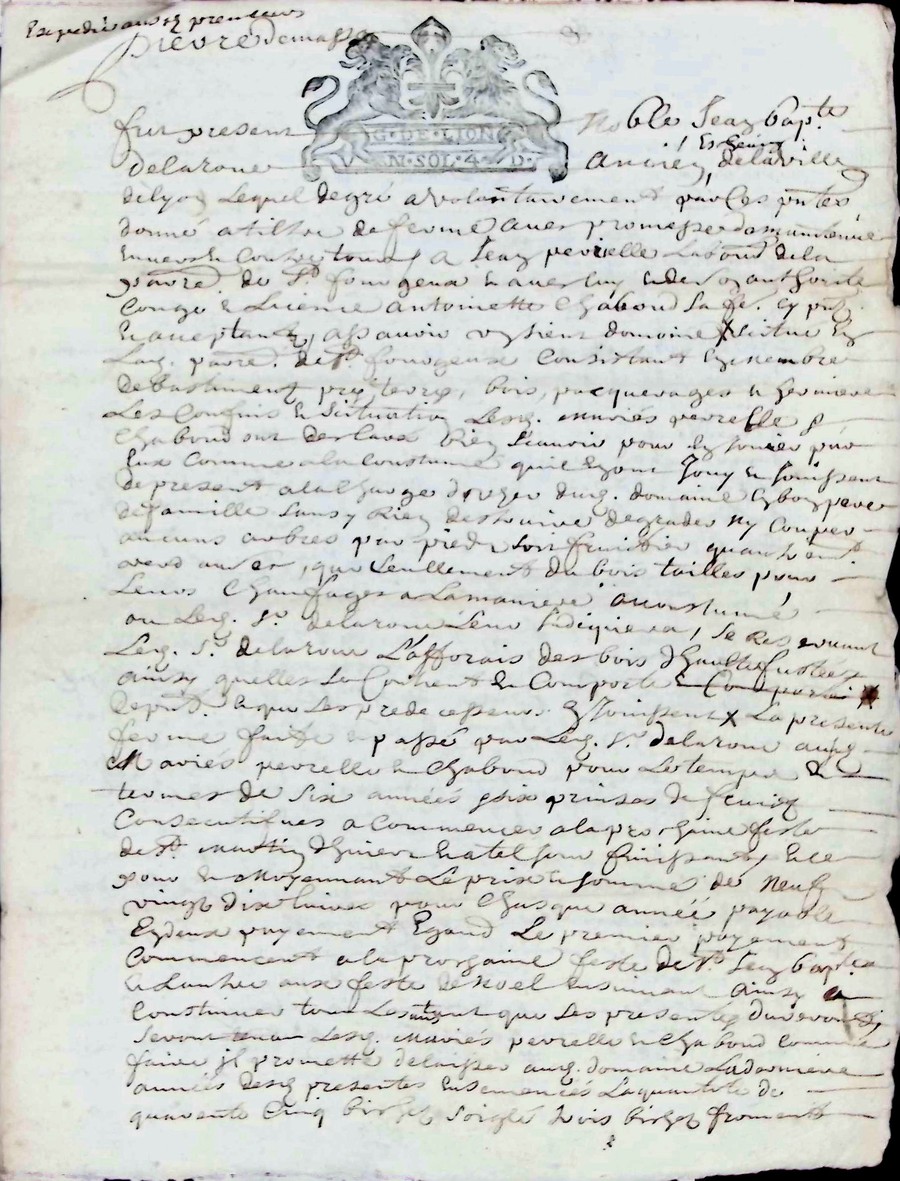 Expedié aud. preneurs
Pierre demasso
G·DE·LION
N·SOL·4·D·
fut present Noble Jean bapte
Eschevin
delaroue ancien delaville
delyon Lequel degré a volontairement par Ces pntes
donné a tiltre de ferme avec promesse de maintenue
envers Et Contre tous a Jean peyrelle Laboureur dela
parre de St fourgeux Et avec luy Et de son authorité
Congé Et Licence Antoinette Chaboud sa fe. cy pnt
Et acceptantz, assavoir un sien domaine situé En
Lad. parre. de St fourgeux Consistant En membre
debastiment pré, terre, bois, pacquerages Et
Les Confins Et situation Lesd. mariés peyrelle &
Chaboud ont declaré bien scavoir pour En jouir par
Eux Comme ala Coustume qu'il En ont Jouy Et Jouissent
depresent ala Charge d'user dud. domaine En bon pere
defamille sans y Rien destruire degrader ny Couper
aucuns arbres par pied soit fruitier quantz
verd ou sec, que seullement du bois tailles pour
Leurs Chauffages a Lamaniere acoustumé
ou Led. Sr. delaroue Leur Indiquera, se Reservant
Led. Sr. delaroue des bois d'haulte fustées
ainsy quelles se Contient Et Comporte Et
depnt. Et que Les predecesseurs En Jouissent La presente
ferme faite Et passé par Led. Sr. delaroue ausd.
Mariés peyrelle Et Chaboud pour Le temps Et
termes de six années & six prinses de fruitz
Consecutifves a Commencer ala prochaine feste
de St. Martin d'hiver Et a tel Jour finissantz Et ce
pour Et Moyennant Le prix Et somme de Neuf
vingt dix livres pour Chasque année payable
En deux payement Egaud Le premier payement
Commencent ala prochaine feste de St. Jean baptes
Et Lautre aux feste de Noel Ensuivant Ainsy a
Continuer tous Les ans tant que Les presentes dureront
seront Lesd. Mariés peyrelle Et Chaboud Comme
faire jl promette delaisser aud. domaine Laderniere
années desd. presentes Ensemencés La quantité de
quarente Cinq bichet soigle trois bichet froment